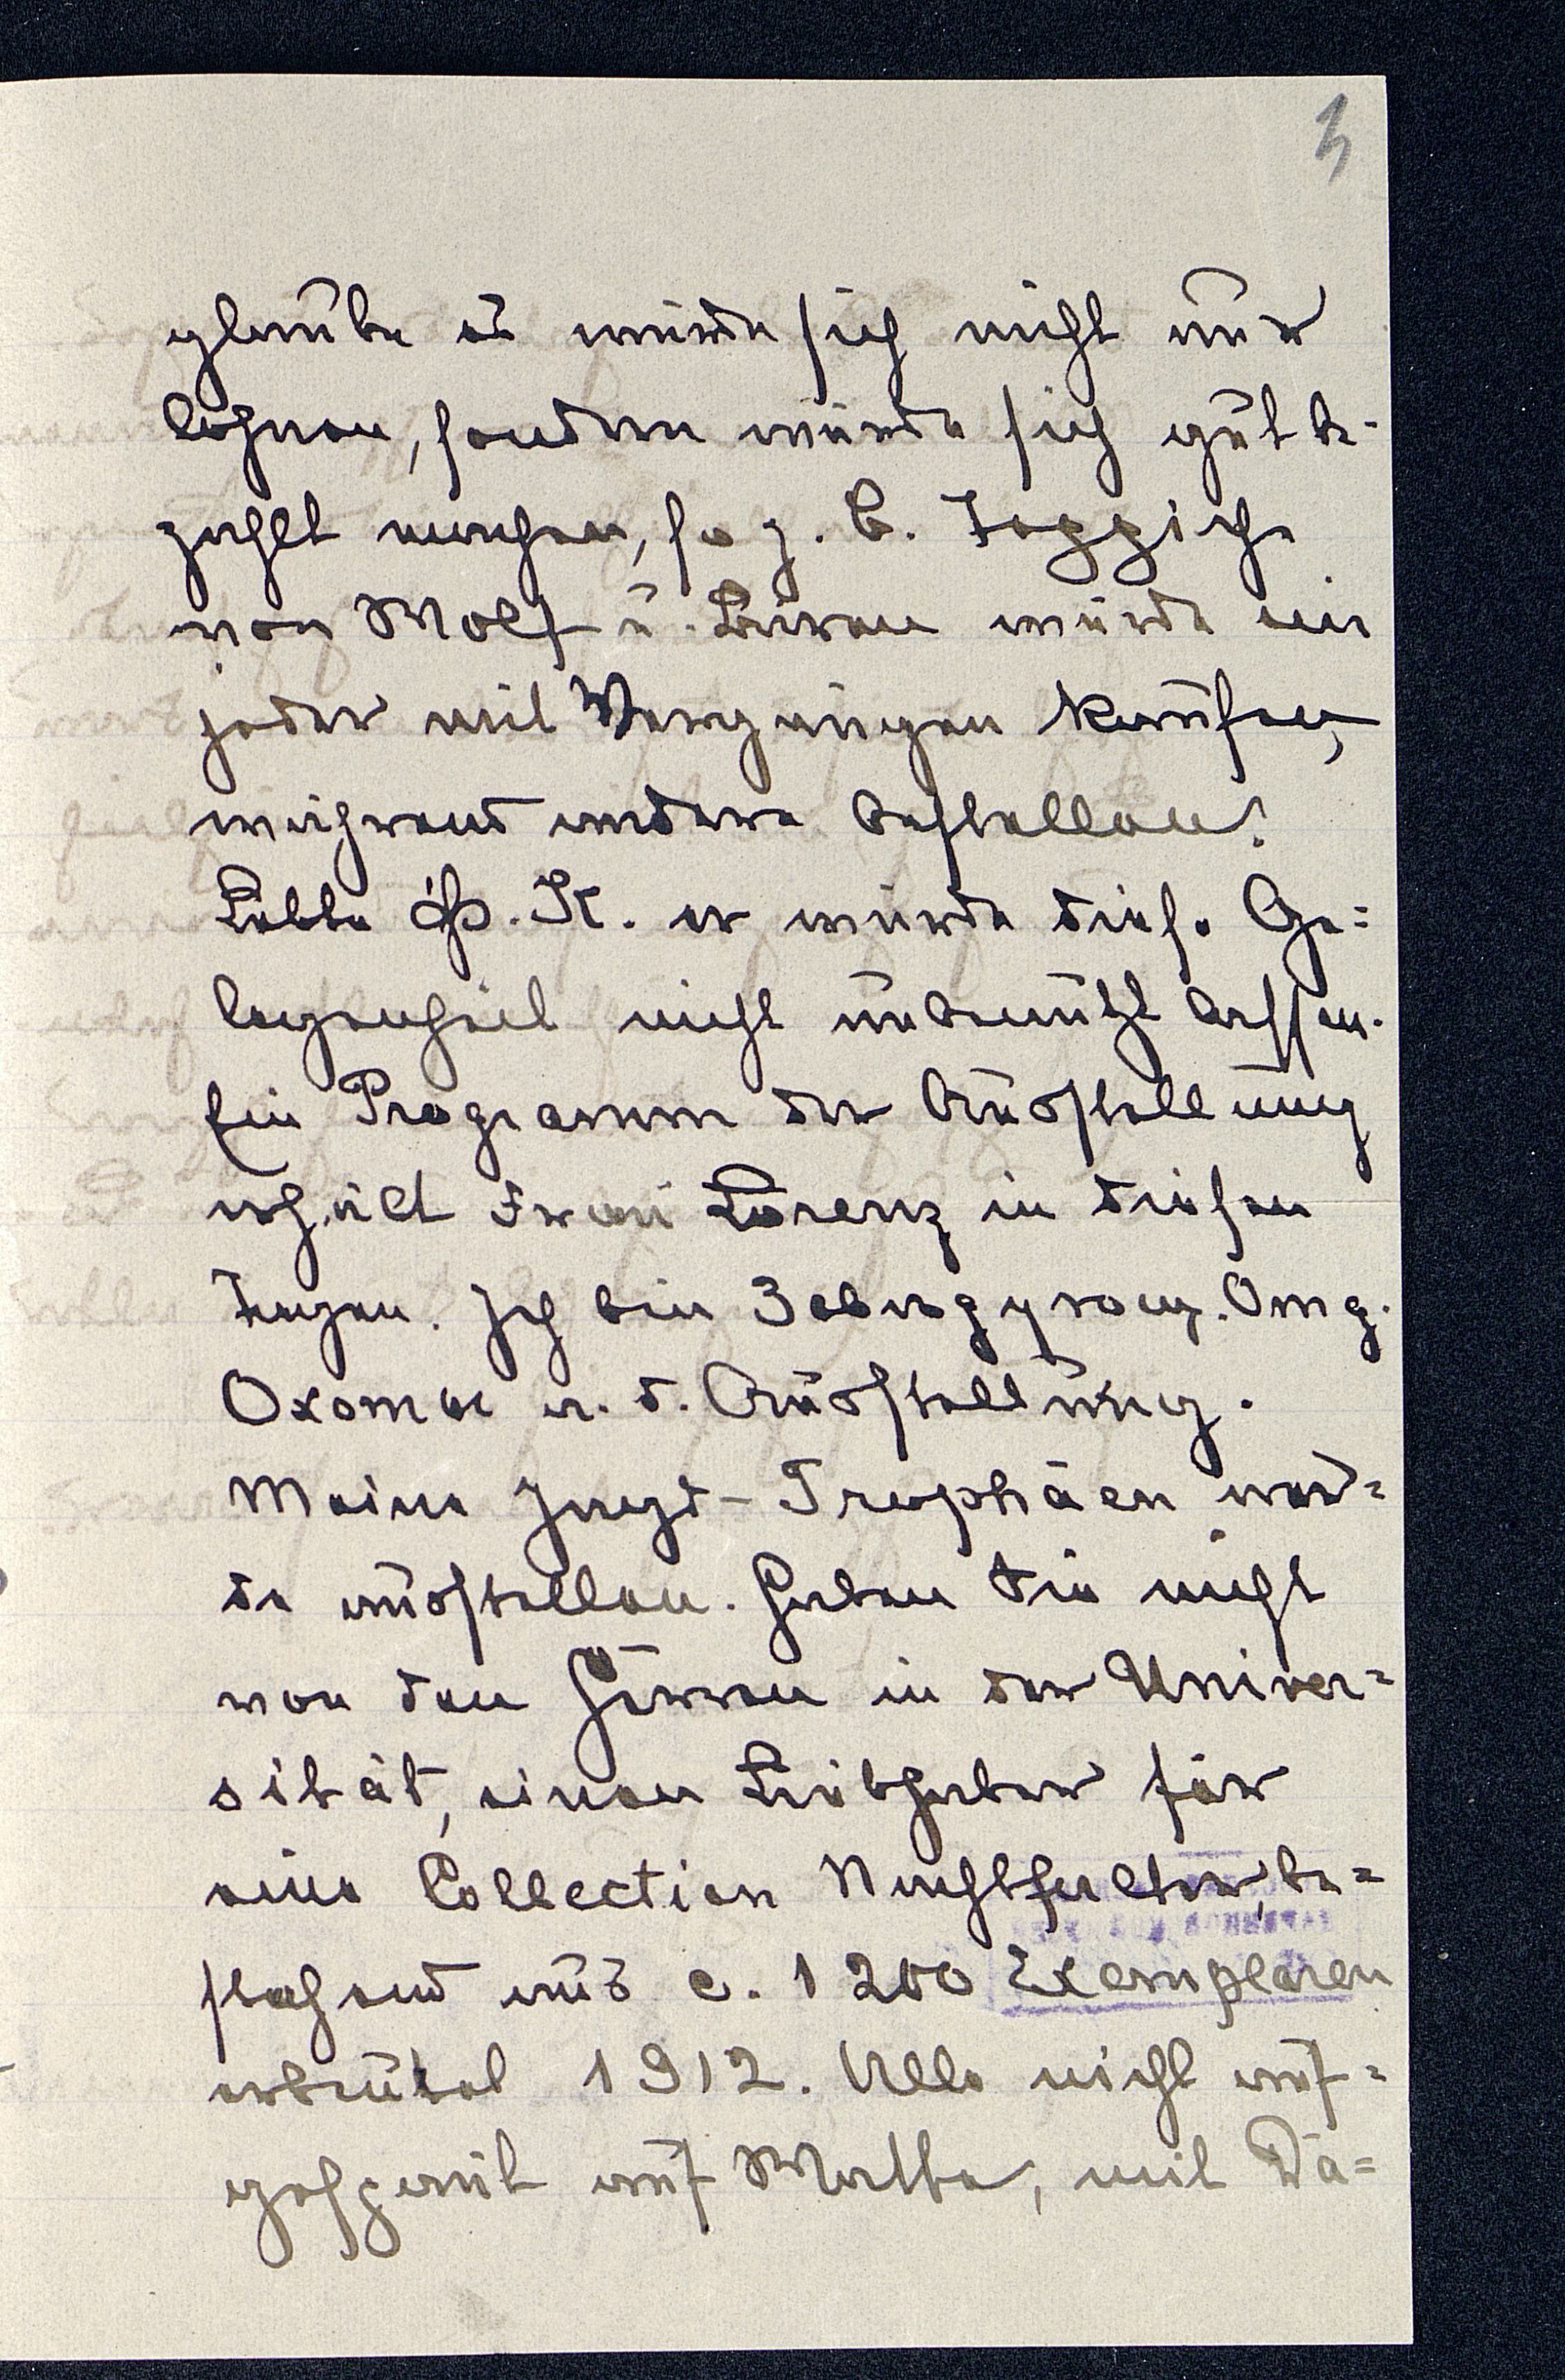 3
glaube es würde sich nicht nur
lohnen, sondern würde sich gut be-
zahlt machen, so z. B. Teppiche
von Wolf u. Bären würde ein
jeder mit Vergnügen kaufen,
während andere bestellen!
Bitte Ф. К. er würde diese Ge=
legenheit nicht unbenützt lassen.
Ein Programm der Ausstellung
erhält Frau Lorenz in diesen
Tagen. Ich bin Завѣдующ. Отд.
Охоты a. d. Ausstellung.
Meine Jagd-Trophäen wer=
de ausstellen. Haben Sie nicht
von den Herren in der Univer=
sität, einen Liebhaber für
eine Collection Nachtfalter, be=
stehend aus c. 1200 Exemplaren
erbeutet 1912. Alle nicht auf=
gespannt auf Watte, mit Da=